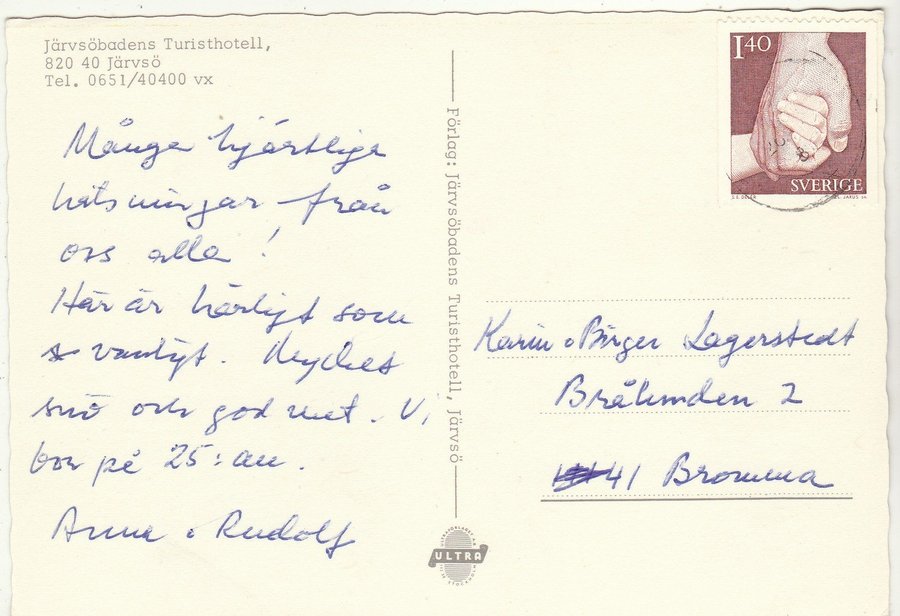 Järvsöbadens Turisthotell,
820 40 Järvsö
Tel. 0651/40400 vx
Många hjärtliga
hälsningar från
oss alla!
Här är härligt som
vanligt. Mycket
snö och god mat. Vi
bor på 25:an.
Anna o Rudolf
Förlag: Järvsöbadens Turisthotell, Järvsö
ULTRA
140
SVERIGE
Karin o Birger Lagerstedt
2
41 Bromma